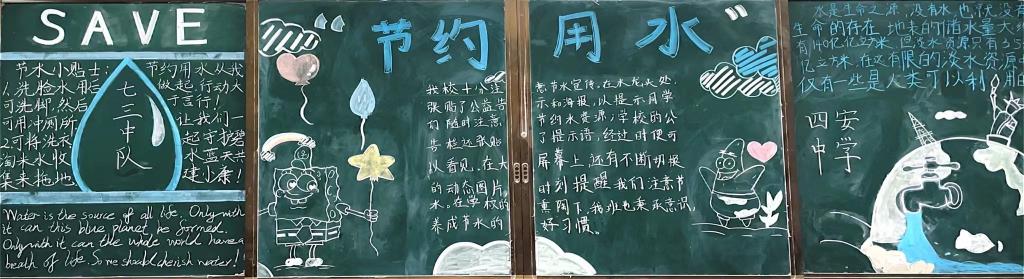 SAVE
节水小贴士:
1.洗脸水用后
可洗脚,然后
可用冲厕所
2可将洗衣
淘米水收
集来拖地
七三中队
节约用水从我
做起,行动大
于言行!
让我们一
起守护碧
水蓝天共
建小康!
Water is the source of all life. Only with
it can this blue planet be formed.
Only with it can the whole world have a
breath of life. So we should cherish water!
节约用水
我校十分注
张贴了公益告
们随时注意
告栏还张贴
以看见,在大
的动态图片,
水,在学校的
养成节水的
意节水宣传,在水龙头处
示和海报,以提示同学
节约水资源;学校的公
了提示语,经过时便可
屏幕上,还有不断切换
时刻提醒我们注意节
熏陶下,我班也来承意识,
好习惯。
水是生命之源,没有水,也就没有
生命的存在,地球的储水量大约
有140亿亿立方米,但淡水资源只有3.5
亿立方米,在这有限的淡水资源中
仅有一些是人类可以利
四安
中学